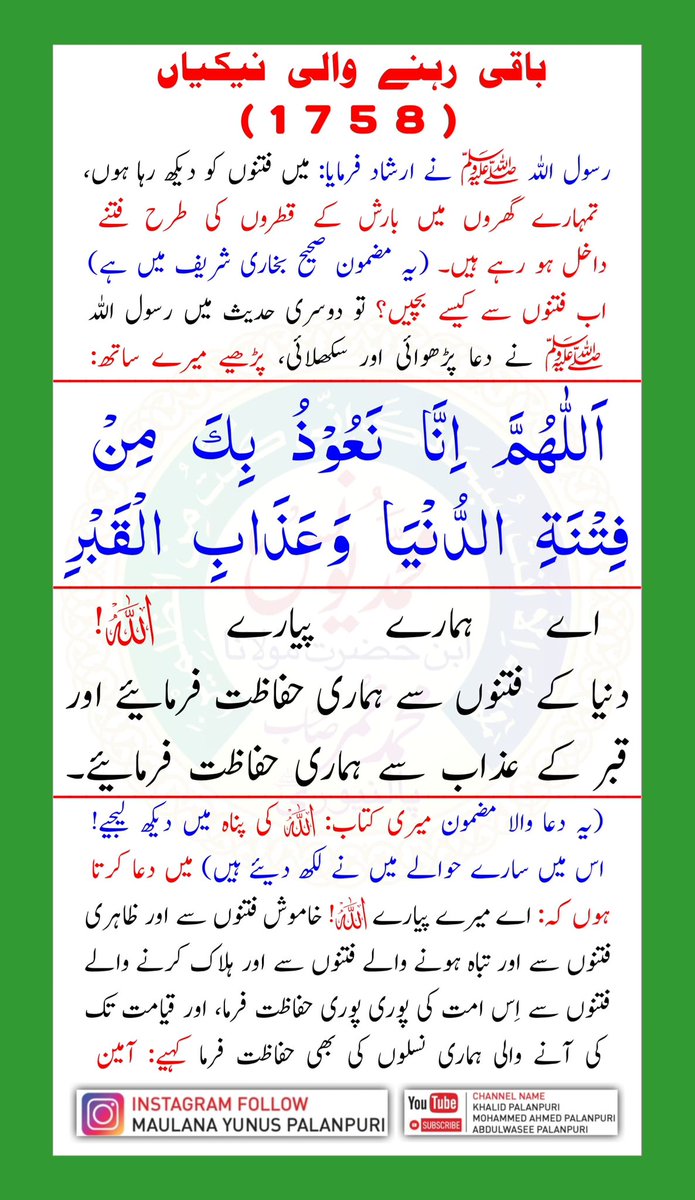 باقی رہنے والی نیکیاں
(1758)
رسول اللہ ﷺ نے ارشاد فرمایا: میں فتنوں کو دیکھ رہا ہوں،
تمہارے گھروں میں بارش کے قطروں کی طرح فتنے
داخل ہو رہے ہیں۔ (یہ مضمون صحیح بخاری شریف میں ہے)
اب فتنوں سے کیسے بچیں؟ تو دوسری حدیث میں رسول اللہ
ﷺ نے دعا پڑھوائی اور سکھلائی، پڑھیے میرے ساتھ:
اَللّٰهُمَّ اِنَّا نَعُوْذُ بِكَ مِنْ
فِتْنَةِ الدُّنْيَا وَعَذَابِ الْقَبْرِ
اے ہمارے پیارے اللہ!
دنیا کے فتنوں سے ہماری حفاظت فرمائیے اور
قبر کے عذاب سے ہماری حفاظت فرمائیے۔
(یہ دعا والا مضمون میری کتاب: اللہ کی پناہ میں دیکھ لیجیے!
اس میں سارے حوالے میں نے لکھ دیئے ہیں) میں دعا کرتا
ہوں کہ: اے میرے پیارے اللہ! خاموش فتنوں سے اور ظاہری
فتنوں سے اور تباہ ہونے والے فتنوں سے اور ہلاک کرنے والے
فتنوں سے اِس امت کی پوری پوری حفاظت فرما، اور قیامت تک
کی آنے والی ہماری نسلوں کی بھی حفاظت فرما کہیے: آمین
INSTAGRAM FOLLOW
MAULANA YUNUS PALANPURI
YouTube
SUBSCRIBE
CHANNEL NAME
KHALID PALANPURI
MOHAMMED AHMED PALANPURI
ABDULWASEE PALANPURI